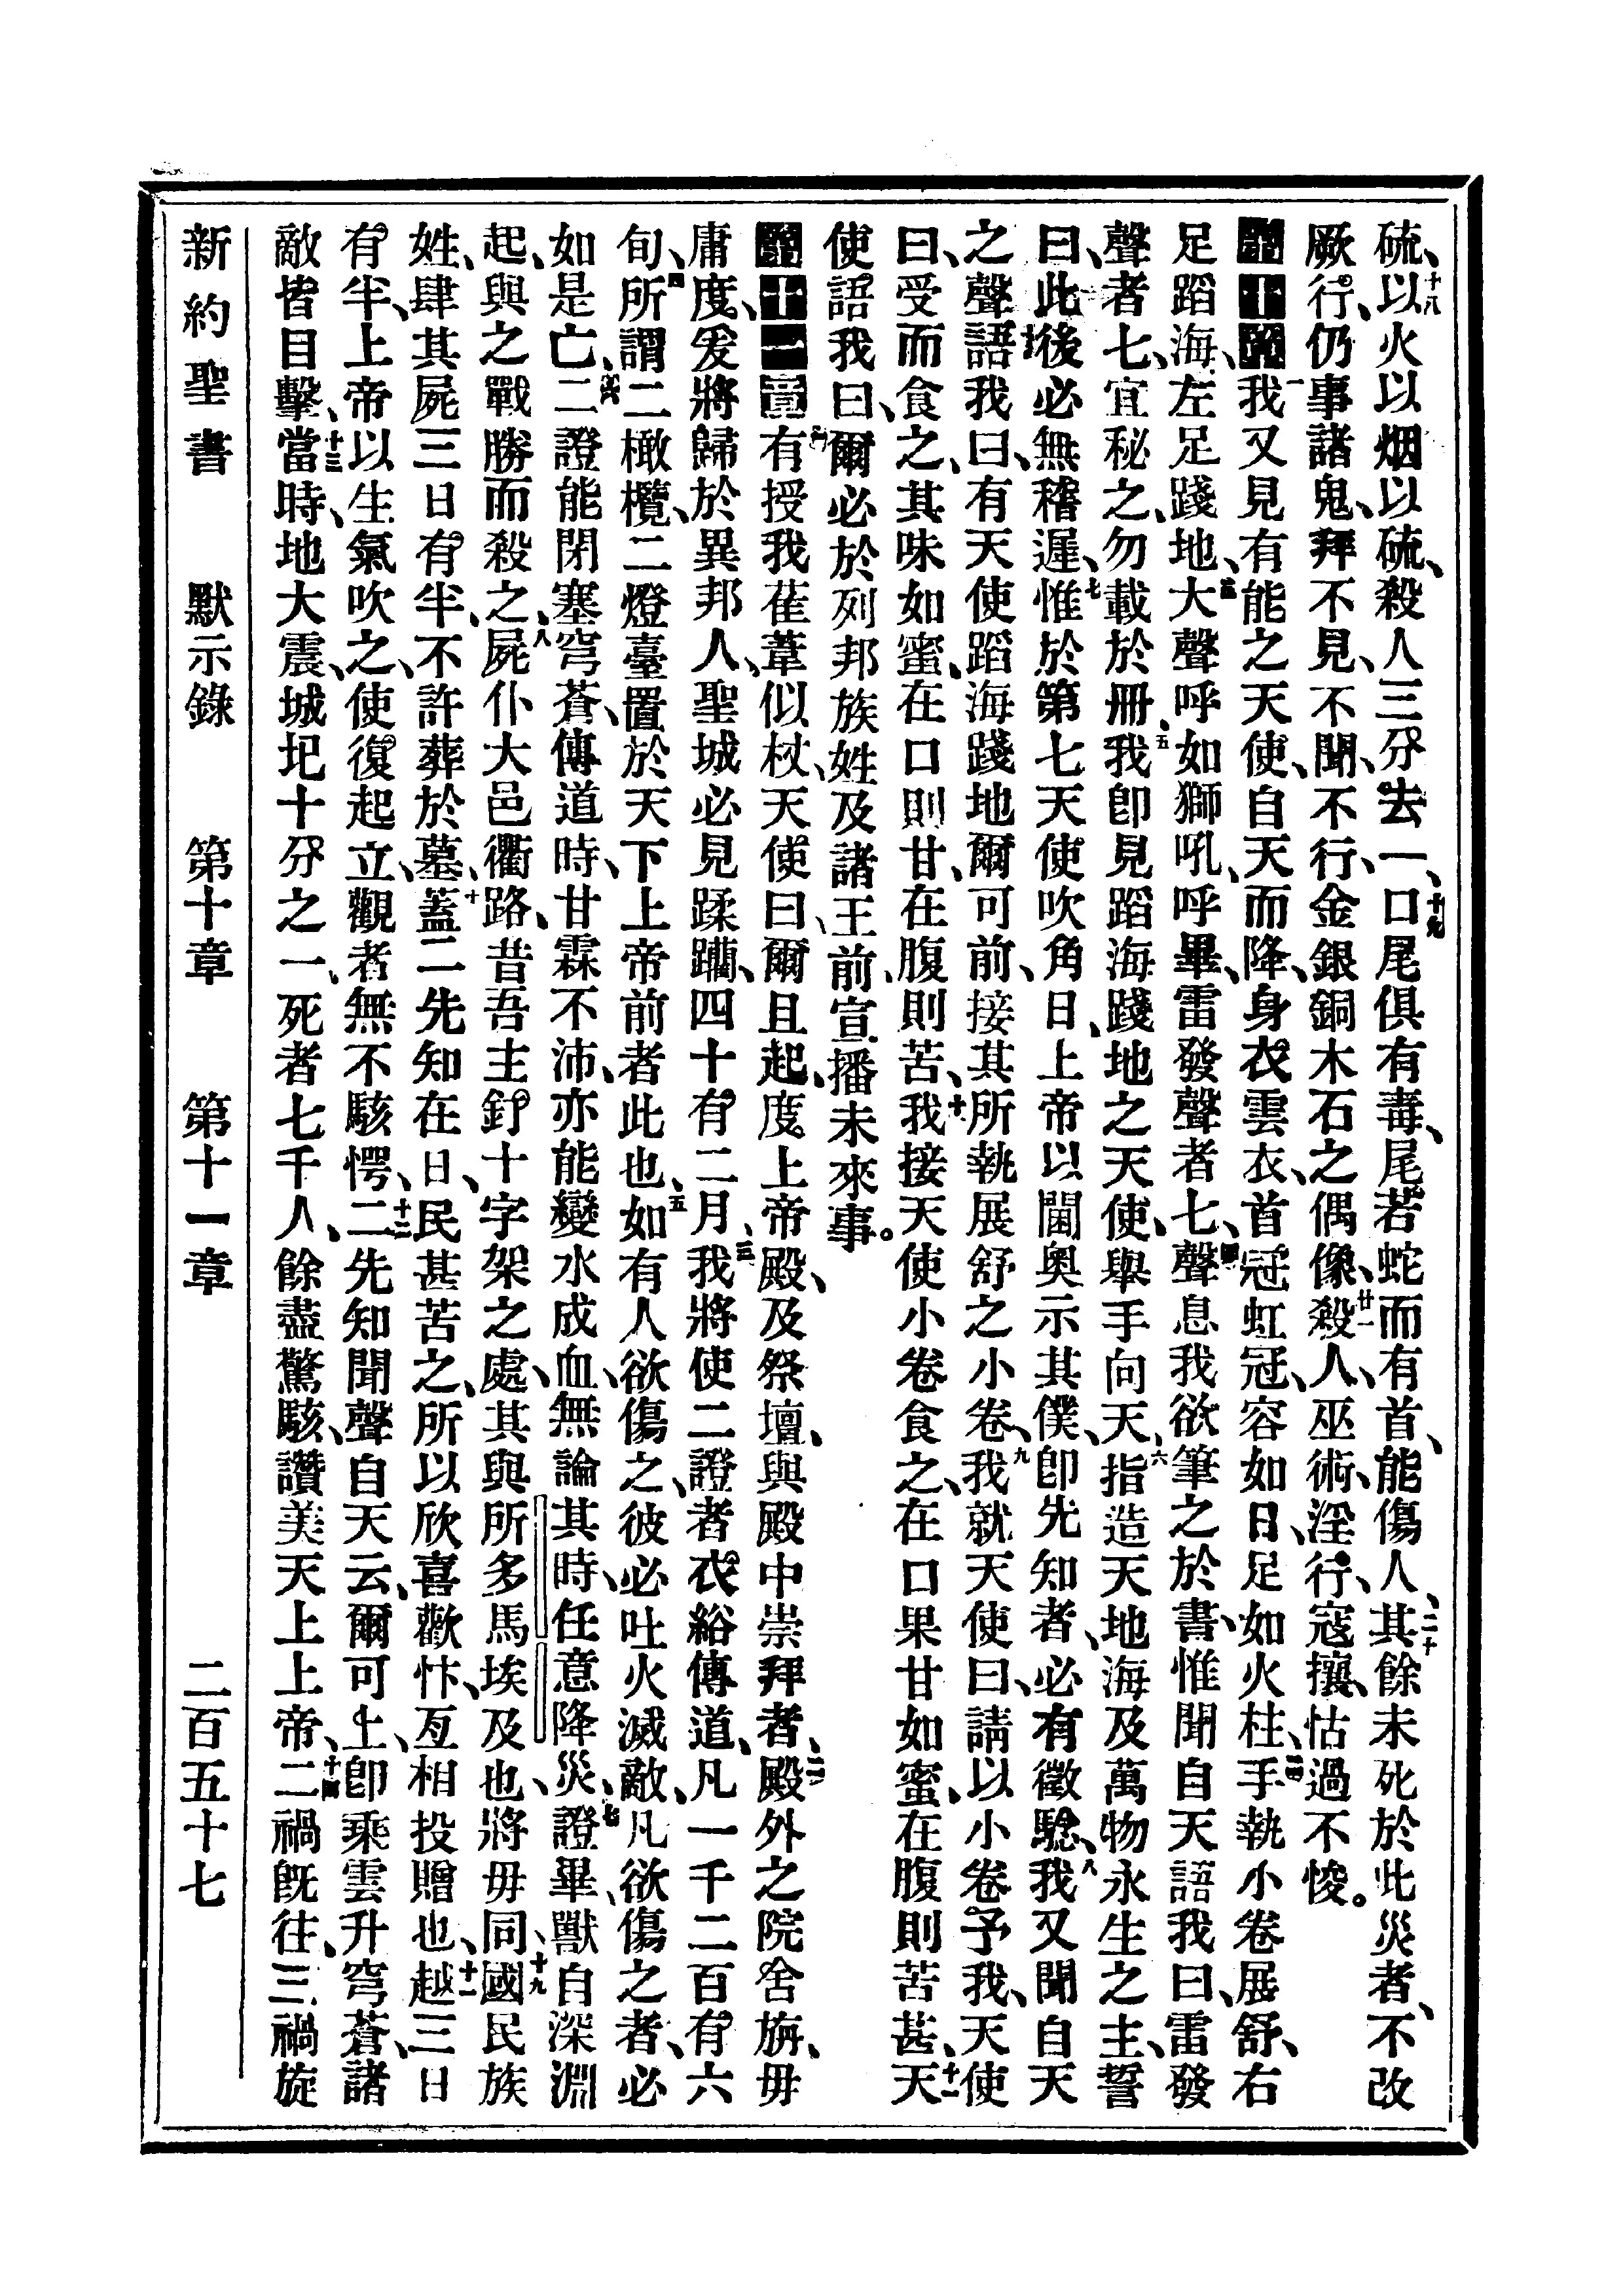 硫、十八以火以烟以硫、殺人三分去一、十九口尾俱有毒、尾若蛇而有首、能傷人、二十其餘未死於此災者、不改
厥行、仍事諸鬼、拜不見、不聞、不行、金銀銅木石之偶像、廿一殺人、巫術、淫行、寇攘、怙過不悛。
第十章一我又見有能之天使、自天而降、身衣雲衣、首冠虹冠、容如日、足如火柱、二手執小卷展舒、右
足蹈海、左足踐地、三大聲呼如獅吼、呼畢、雷發聲者七、四聲息我欲筆之於書、惟聞自天語我曰、雷發
聲者七、宜秘之、勿載於冊、五我卽見蹈海踐地之天使、舉手向天、六指造天地海及萬物永生之主、誓
曰、此後必無稽遲、七惟於第七天使吹角日、上帝以閫奧示其僕、卽先知者、必有徵驗、八我又聞自天
之聲語我曰、有天使蹈海踐地爾可前、接其所執展舒之小卷、九我就天使曰、請以小卷予我、天使
曰、受而食之、其味如蜜、在口則甘、在腹則苦、十我接天使小卷食之、在口果甘如蜜、在腹則苦甚、十一天
使語我曰、爾必於列邦族姓及諸王前、宣播未來事。
第十一章一有授我萑葦似杖、天使曰、爾且起、度上帝殿、及祭壇、與殿中崇拜者、二殿外之院舍旃、毋
庸度、爰將歸於異邦人、聖城必見蹂躪、四十有二月、三我將使二證者衣綌傳道、凡一千二百有六
旬、四所謂二橄欖、二燈臺置於天下上帝前者此也、五如有人欲傷之、彼必吐火滅敵、凡欲傷之者、必
如是亡、六二證能閉塞穹蒼、傳道時、甘霖不沛、亦能變水成血、無論其時、任意降災、七證畢、獸自深淵
起、與之戰勝而殺之、八屍仆大邑衢路、昔吾主釘十字架之處、其與所多馬埃及也、將毋同、九國民族
姓、肆其屍三日有半、不許葬於墓、十蓋二先知在日、民甚苦之、所以欣喜歡忭、亙相投贈也、十一越三日
有半、上帝以生氣吹之、使復起立、觀者無不駭愕、十二二先知聞聲自天云、爾可上、卽乘雲升穹蒼、諸
敵皆目擊、十三當時、地大震、城圮十分之一、死者七千人、餘盡驚駭、讚美天上上帝、十四二禍旣往、三禍旋
新約聖書　默示錄　第十章　第十一章　二百五十七